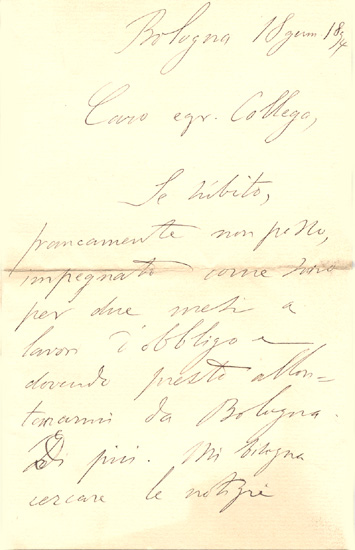 Bologna 18 genn 1894
Caro egr. Collega,
Se sùbito,
francamente non posso,
impegnato come sono
per due mesi a
lavori d'obbligo e
dovendo presto allon-
tanarmi da Bologna.
Di più. Mi bisogna
cercare le notizie